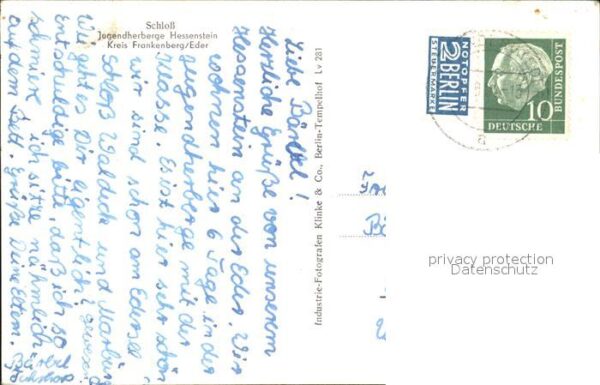 Schloß
Jugendherberge Hessenstein
Kreis Frankenberg/Eder
Liebe Bärbel!
Herzliche Grüße von unserem
Hessenstein an der Eder. Wir
wohnen hier 6 Tage in der
Jugendherberge mit der
Klasse. Es ist hier sehr schön
wir sind schon am Edersee
Schloß Waldeck und Marburg
gewesen.
Wie geht es Dir eigentlich?
Entschuldige bitte, daß ich so
schmiere ich sitze nämlich
auf dem Bett. Grüße Deine Eltern.
Bärbel
Industrie-Fotografen Klinke & Co., Berlin-Tempelhof Lv 281
NOTOPFER
2 BERLIN
STEUERMARKE
10
DEUTSCHE
BUNDESPOST
privacy protection
Datenschutz